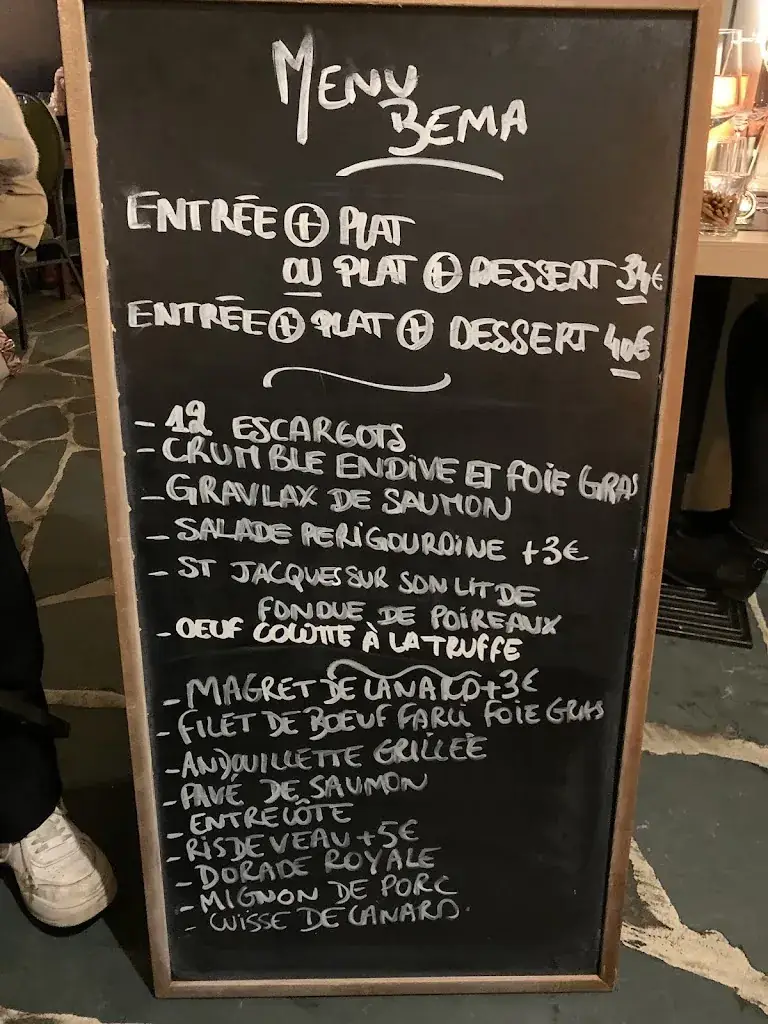 MENU
BEMA
ENTRÉE + PLAT
OU PLAT + DESSERT 34€
ENTRÉE + PLAT + DESSERT 40€
- 12 ESCARGOTS
- CRUMBLE ENDIVE ET FOIE GRAS
- GRAVLAX DE SAUMON
- SALADE PERIGOURDINE +3€
- ST JACQUES SUR SON LIT DE
FONDUE DE POIREAUX
- OEUF COCOTTE À LA TRUFFE
- MAGRET DE CANARD +3€
- FILET DE BOEUF FARCI FOIE GRAS
- ANDOUILLETTE GRILLÉE
- PAVÉ DE SAUMON
- ENTRECÔTE
- RIS DE VEAU +5€
- DORADE ROYALE
- MIGNON DE PORC
- CUISSE DE CANARD.